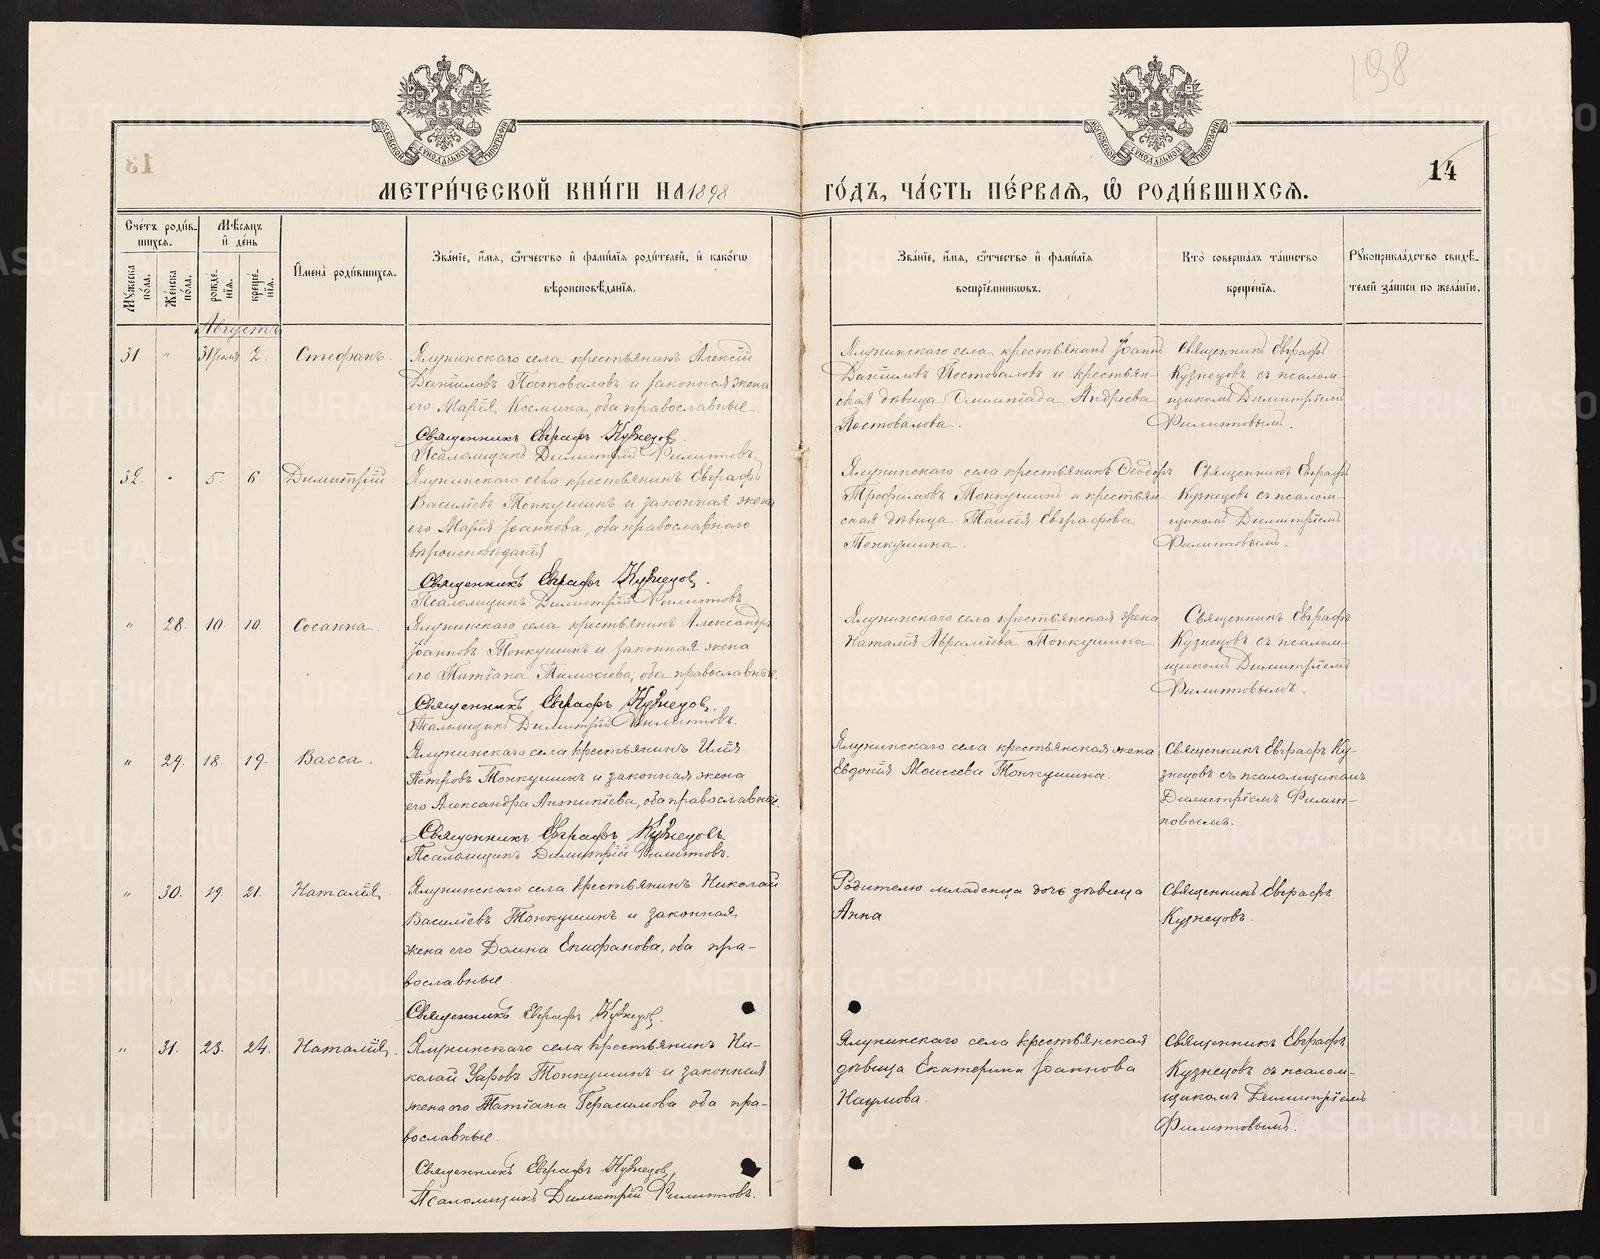 198
13
14
МОСКОВСКОЙ СУНОДАЛЬНОЙ ТИПОГРАФІИ
МОСКОВСКОЙ СУНОДАЛЬНОЙ ТИПОГРАФІИ
МЕТРИ́ЧЕСКОЙ КНИ́ГИ НА 1898 ГО́ДЪ, ЧА́СТЬ ПЕ́РВАѦ, Ѽ РОДИ́ВШИХСѦ.
Сче́тъ роди́в-
шихсѧ.
Мѣ́сѧцъ
и҆ де́нь
Мꙋ́жеска по́ла.
Же́нска по́ла.
рожде́-
нїѧ.
креще́-
нїѧ.
И҆мена̀ роди́вшихсѧ.
Зва́нїе, и҆́мѧ, ѻ҆́тчество и҆ фами́лїѧ роди́телей, и҆ како́гѡ
вѣроисповѣ́данїѧ.
Зва́нїе, и҆́мѧ, ѻ҆́тчество и҆ фами́лїѧ
воспрїе́мникѡвъ.
Кто̀ соверша́лъ та́инство
креще́нїѧ.
Рꙋкоприкла́дство свидѣ́-
телей за́писи по жела́нїю.
Августъ
31 " 31 Іюля 2. Стефанъ.
Ялунинскаго села крестьянинъ Алексій
Даніиловъ Постоваловъ и законная жена
его Марія Космина, оба православные.
Священникъ Евграфъ Кузнецов.
Псаломщикъ Димитрій Филипповъ.
Ялунинскаго села крестьянинъ Іоаннъ
Даніиловъ Постоваловъ и крестьян-
ская дѣвица Олимпіада Андреева
Постовалова.
Священникъ Евграфъ
Кузнецовъ съ псалом-
щикомъ Димитріемъ
Филипповымъ.
32. " 5. 6 Димитрій
Ялунинскаго села крестьянинъ Евграфъ
Василіевъ Тонкушинъ и законная жена
его Марія Іоаннова, оба православнаго
вѣроисповѣданія
Священникъ Евграфъ Кузнецовъ.
Псаломщикъ Димитрій Филипповъ.
Ялунинскаго села крестьянинъ Ѳеодоръ
Трофимовъ Тонкушинъ и крестьян-
ская дѣвица Таисія Евграфова
Тонкушина.
Священникъ Евграфъ
Кузнецовъ съ псалом-
щикомъ Димитріемъ
Филипповымъ.
" 28. 10. 10 Сосанна.
Ялунинскаго села крестьянинъ Александръ
Іоанновъ Тонкушинъ и законная жена
его Татіана Тимоѳеева, оба православные.
Священникъ Евграфъ Кузнецовъ.
Псаломщикъ Димитрій Филипповъ.
Ялунинскаго села крестьянская жена
Наталія Авраміева Тонкушина.
Священникъ Евграфъ
Кузнецовъ съ псалом-
щикомъ Димитріемъ
Филипповымъ.
" 29. 18. 19. Васса.
Ялунинскаго села крестьянинъ Илія
Петровъ Тонкушинъ и законная жена
его Александра Антипіева, оба православные.
Священникъ Евграфъ Кузнецовъ
Псаломщикъ Димитрій Филипповъ.
Ялунинскаго села крестьянская жена
Евдокія Моисеева Тонкушина.
Священникъ Евграфъ Ку-
знецовъ съ псаломщикомъ
Димитріемъ Филип-
повымъ.
" 30. 19 21. Наталія
Ялунинскаго села крестьянинъ Николай
Василіевъ Тонкушинъ и законная
жена его Домна Епифанова, оба пра-
вославные
Священникъ Евграфъ Кузнецовъ.
Родителю младенца дочь дѣвица
Анна
Священникъ Евграфъ
Кузнецовъ.
" 31. 23. 24. Наталія.
Ялунинскаго села крестьянинъ Ни-
колай Уаровъ Тонкушинъ и законная
жена его Татіана Герасимова оба пра-
вославные.
Священникъ Евграфъ Кузнецовъ,
Псаломщикъ Димитрій Филипповъ.
Ялунинскаго села крестьянская
дѣвица Екатерина Іоаннова
Наумова.
Священникъ Евграфъ
Кузнецовъ съ псалом-
щикомъ Димитріемъ
Филипповымъ.
METRIKI.GASO-URAL.RU